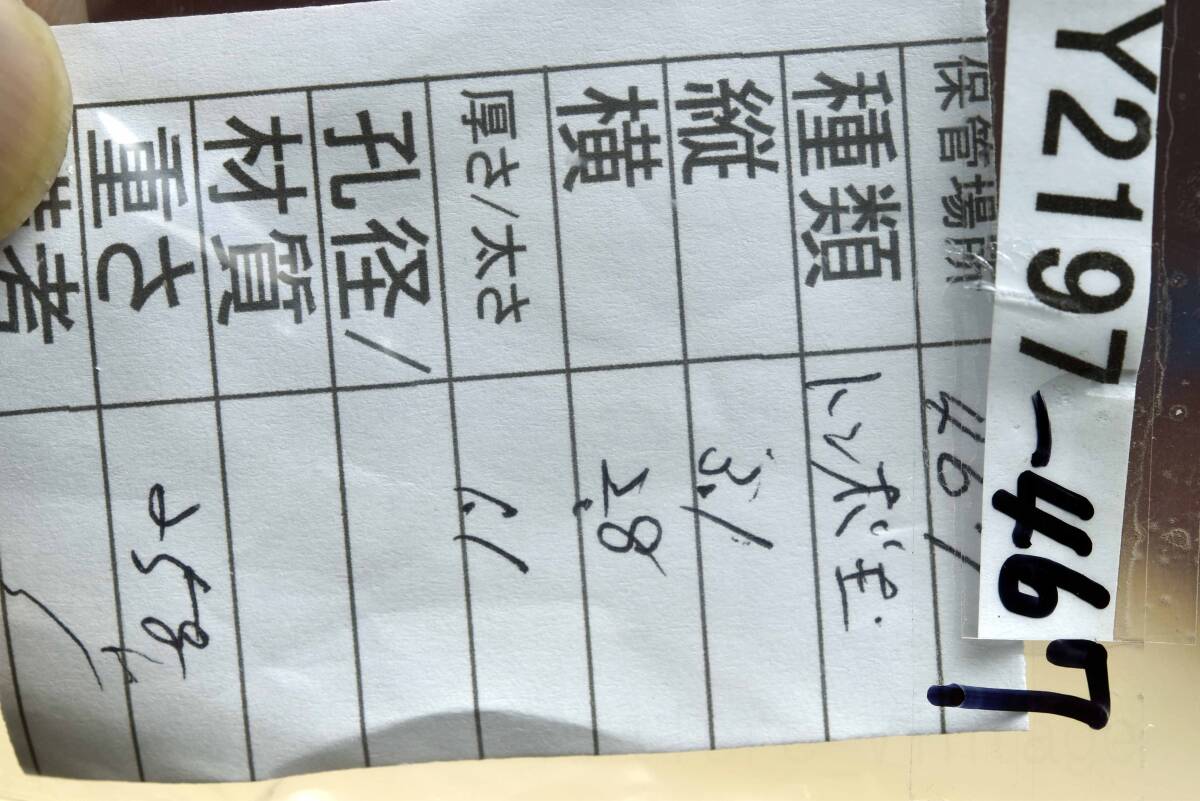 Y2197-467
保管場所 467
種類 トンボ玉
縦 3.1
横 2.8
厚さ/太さ 1.1
孔径/
材質
重さ
備考